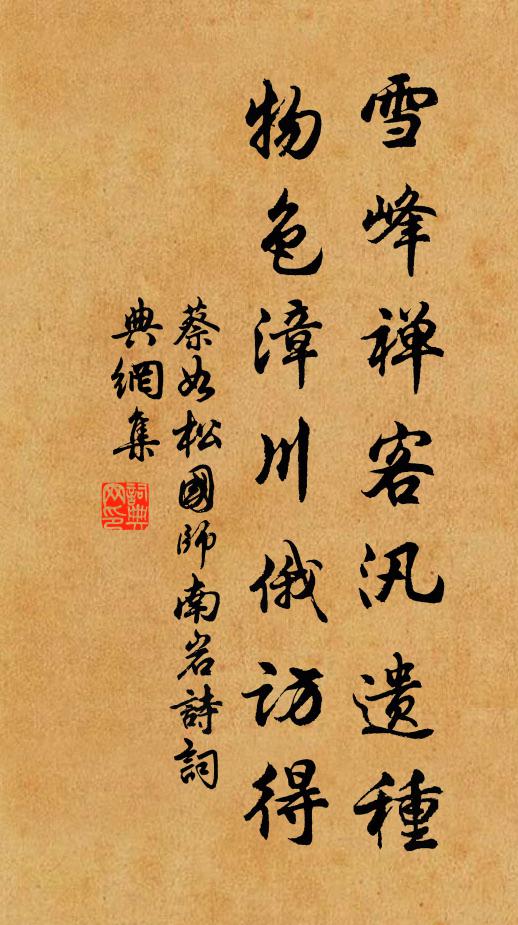 雪峰禅客汎遺種
物色漳川俄訪得
蔡如松國師南岩詩詞
典網集
詞典
网印